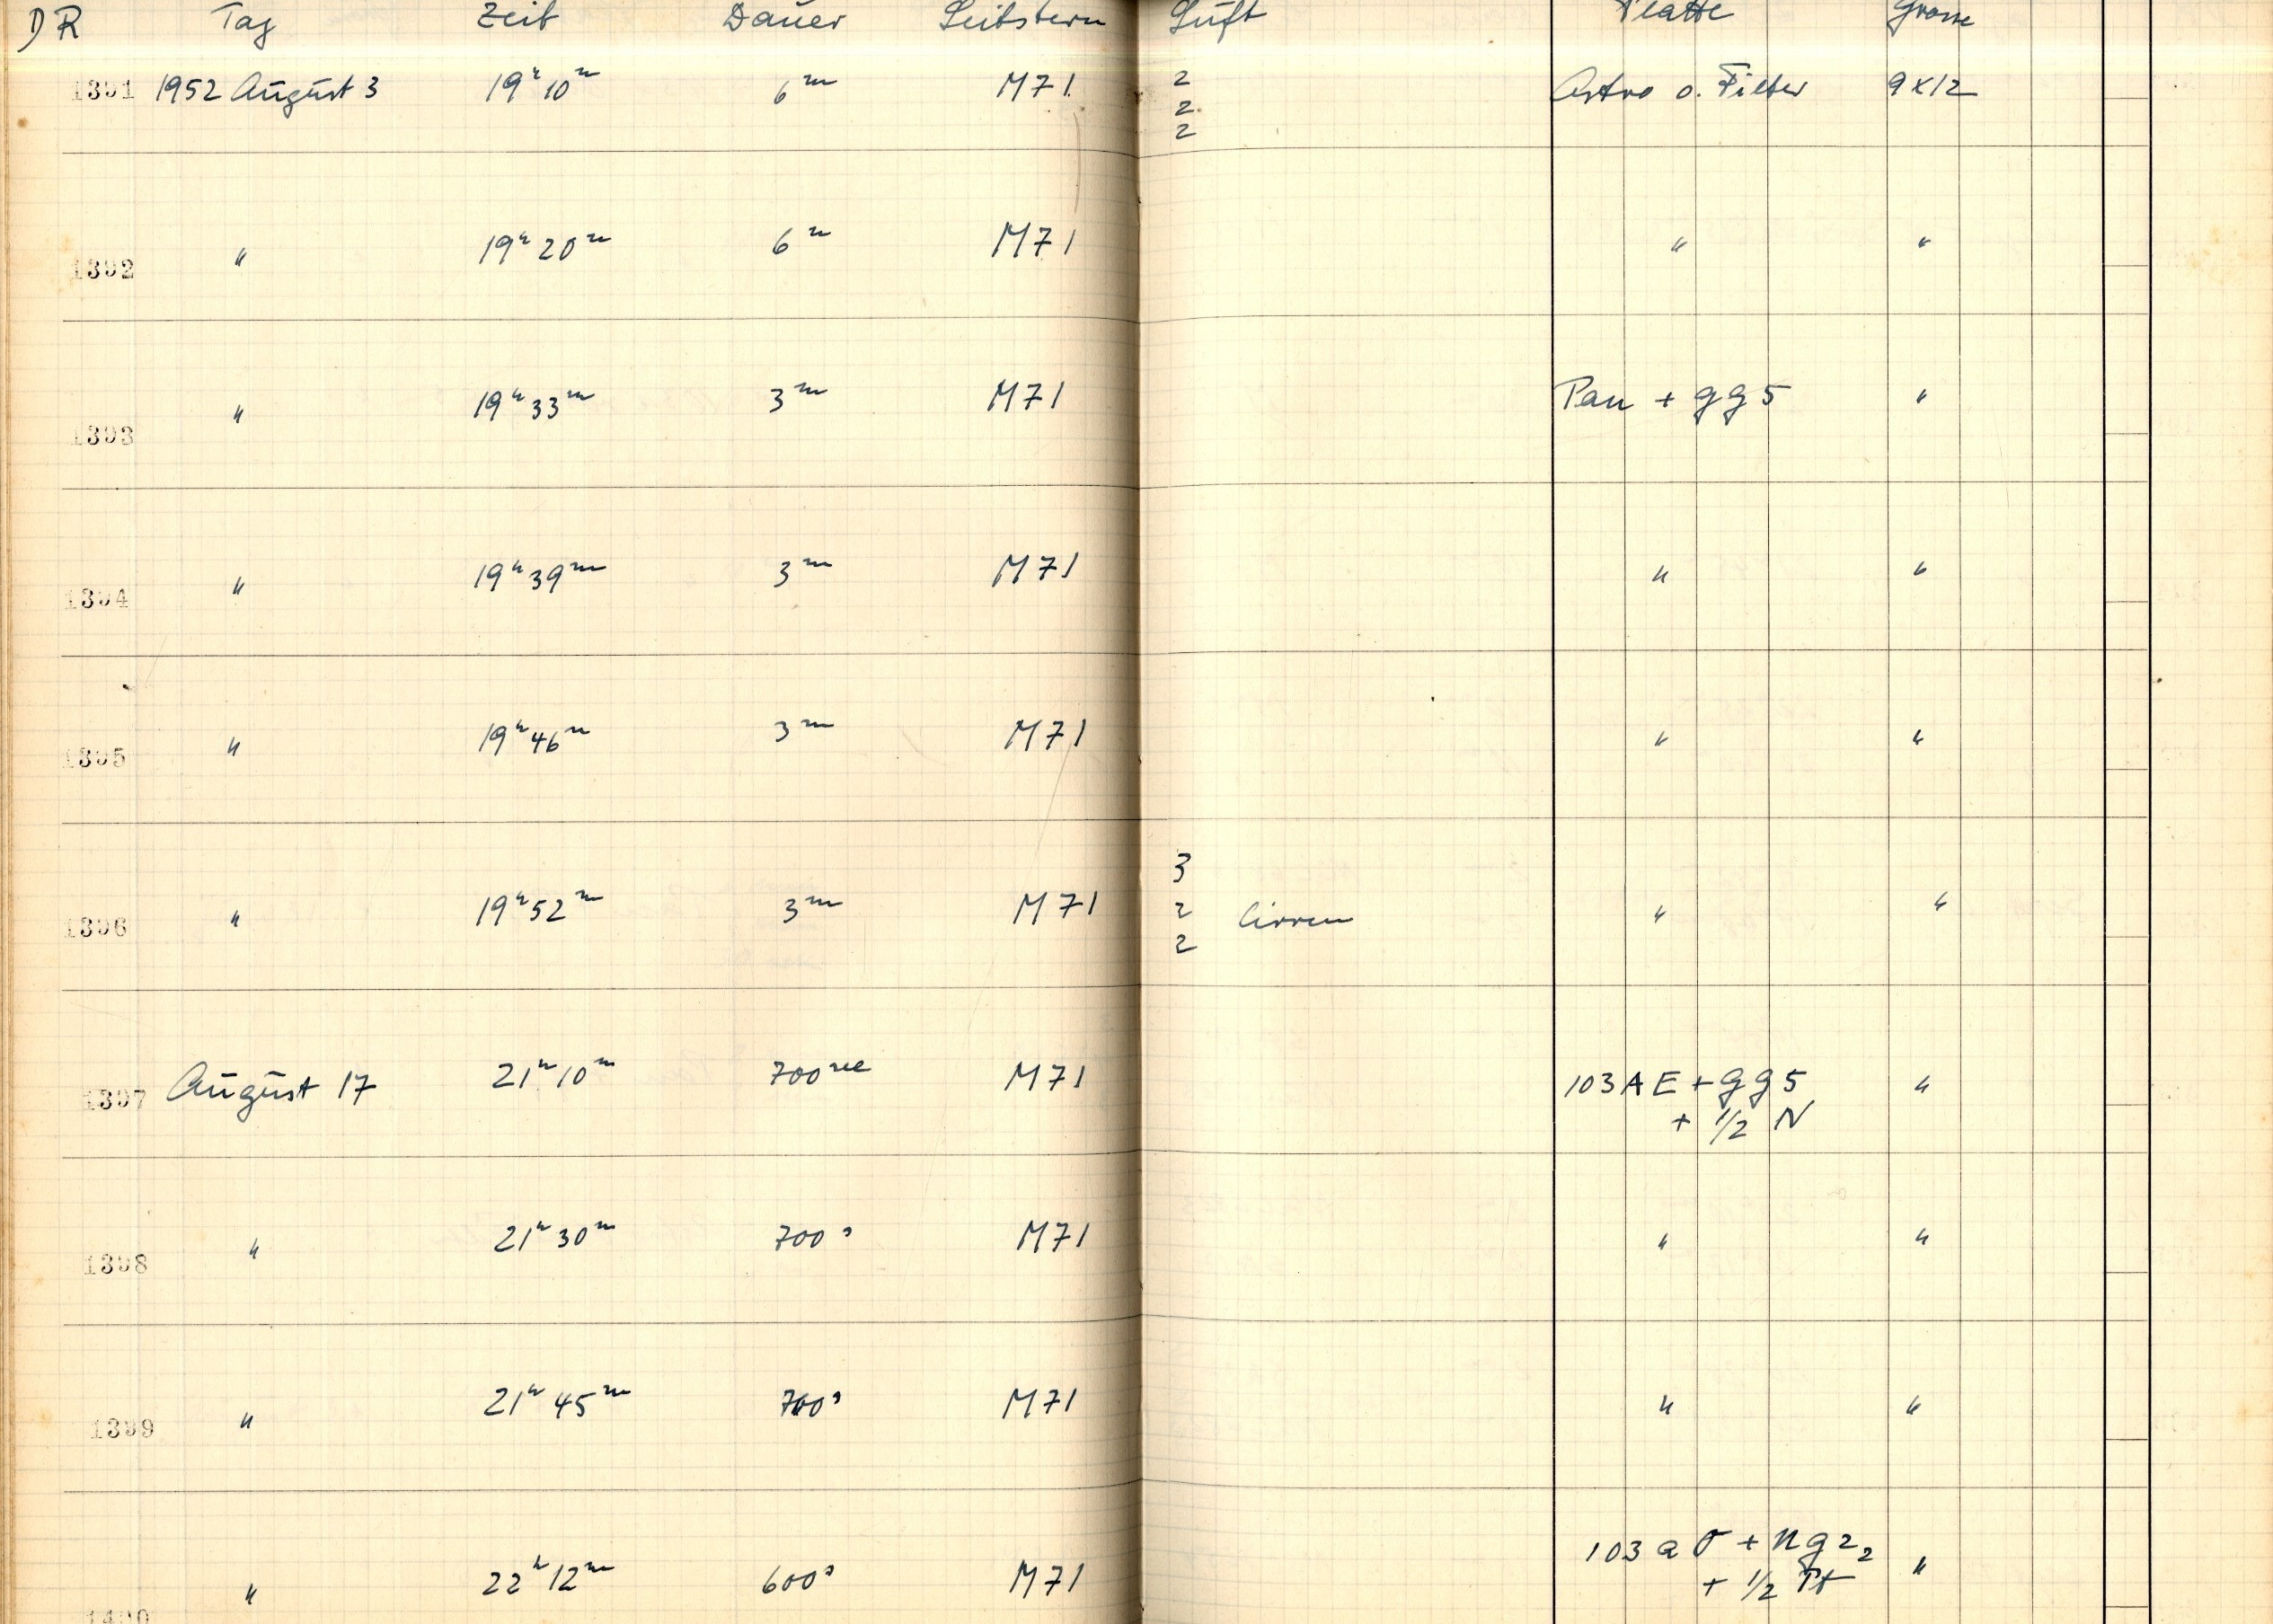 DR Tag Zeit Dauer Leitstern Luft Platte Grösse
1391 1952 August 3 19h 10m 6m M71 2 Astro o. Filter 9x12
2
2
1392 " 19h 20m 6m M71 " "
1393 " 19h 33m 3m M71 Pan + gg5 "
1394 " 19h 39m 3m M71 " "
1395 " 19h 46m 3m M71 " "
3
1396 " 19h 52m 3m M71 2 Cirren " "
2
1397 August 17 21h 10m 700sec M71 103AE + gg5 "
+ 1/2 N
1398 " 21h 30m 700s M71 " "
1399 " 21h 45m 700s M71 " "
103aO + Ng22
1400 " 22h 12m 600s M71 + 1/2 Pt "